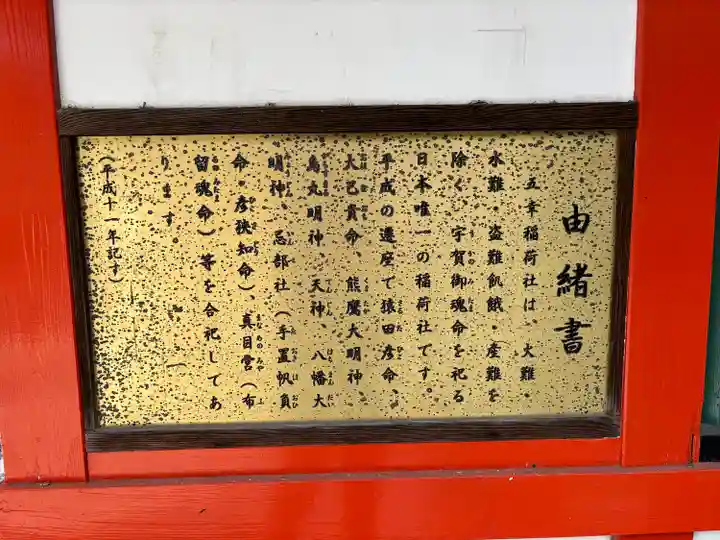 由緒書
五幸稲荷社は、火難・
水難・盗難飢餓・産難を
除く、宇賀御魂命を祀る
日本唯一の稲荷社です。
平成の遷座で猿田彦命、
大己貴命、熊鷹大明神、
烏丸明神、天神、八幡大
明神、忌部社(手置帆負
命・彦狭知命)、真目宮(布
留魂命)等を合祀してあ
ります。
(平成十一年記す)